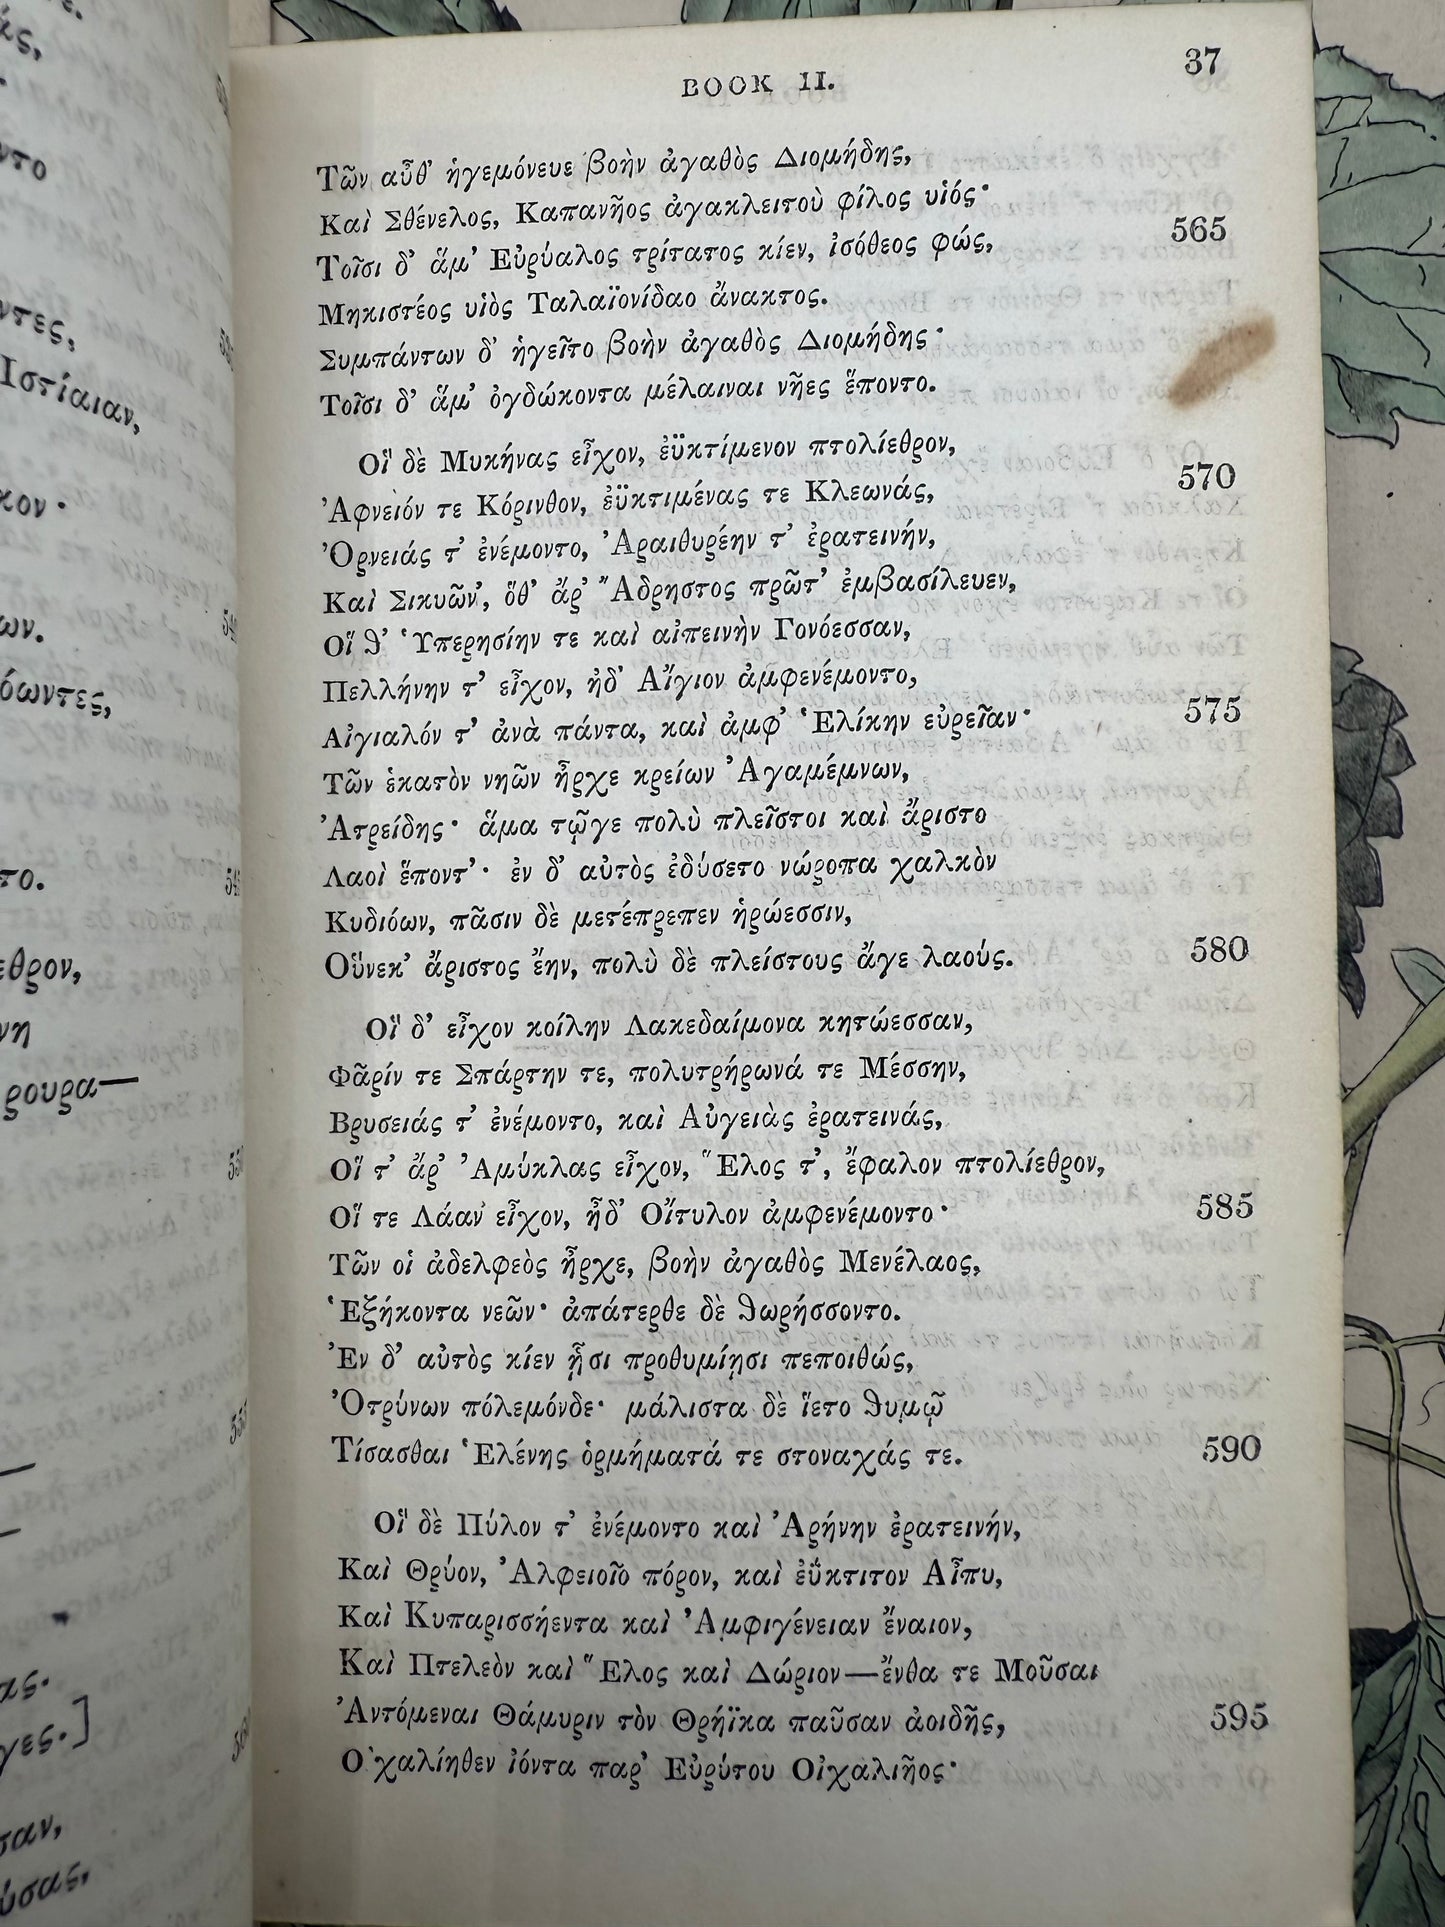 BOOK II.
37
Τῶν αὖθ’ ἡγεμόνευε βοὴν ἀγαθὸς Διομήδης,
Καὶ Σθένελος, Καπανῆος ἀγακλειτοῦ φίλος υἱός·
Τοῖσι δ’ ἅμ’ Εὐρύαλος τρίτατος κίεν, ἰσόθεος φώς,
565
Μηκιστέος υἱὸς Ταλαϊονίδαο ἄνακτος.
Συμπάντων δ’ ἡγεῖτο βοὴν ἀγαθὸς Διομήδης·
Τοῖσι δ’ ἅμ’ ὀγδώκοντα μέλαιναι νῆες ἕποντο.
Οἳ δὲ Μυκήνας εἶχον, ἐϋκτίμενον πτολίεθρον,
Ἀφνειόν τε Κόρινθον, ἐϋκτιμένας τε Κλεωνάς,
570
Ὀρνειάς τ’ ἐνέμοντο, Ἀραιθυρέην τ’ ἐρατεινήν,
Καὶ Σικυῶν’, ὅθ’ ἄρ’ Ἄδρηστος πρῶτ’ ἐμβασίλευεν,
Οἵ θ’ Ὑπερησίην τε καὶ αἰπεινὴν Γονόεσσαν,
Πελλήνην τ’ εἶχον, ἠδ’ Αἴγιον ἀμφενέμοντο,
Αἰγιαλόν τ’ ἀνὰ πάντα, καὶ ἀμφ’ Ἑλίκην εὐρεῖαν·
575
Τῶν ἑκατὸν νηῶν ἦρχε κρείων Ἀγαμέμνων,
Ἀτρείδης· ἅμα τῷγε πολὺ πλεῖστοι καὶ ἄριστο
Λαοὶ ἕποντ’· ἐν δ’ αὐτὸς ἐδύσετο νώροπα χαλκὸν
Κυδιόων, πᾶσιν δὲ μετέπρεπεν ἡρώεσσιν,
Οὕνεκ’ ἄριστος ἔην, πολὺ δὲ πλείστους ἄγε λαούς.
580
Οἳ δ’ εἶχον κοίλην Λακεδαίμονα κητώεσσαν,
Φᾶρίν τε Σπάρτην τε, πολυτρήρωνά τε Μέσσην,
Βρυσειάς τ’ ἐνέμοντο, καὶ Αὐγειὰς ἐρατεινάς,
Οἵ τ’ ἄρ’ Ἀμύκλας εἶχον, Ἕλος τ’, ἔφαλον πτολίεθρον,
Οἵ τε Λάαν εἶχον, ἠδ’ Οἴτυλον ἀμφενέμοντο·
585
Τῶν οἱ ἀδελφεὸς ἦρχε, βοὴν ἀγαθὸς Μενέλαος,
Ἑξήκοντα νεῶν· ἀπάτερθε δὲ θωρήσσοντο.
Ἐν δ’ αὐτὸς κίεν ᾗσι προθυμίῃσι πεποιθώς,
Ὀτρύνων πόλεμόνδε· μάλιστα δὲ ἵετο θυμῷ
Τίσασθαι Ἑλένης ὁρμήματά τε στοναχάς τε.
590
Οἳ δὲ Πύλον τ’ ἐνέμοντο καὶ Ἀρήνην ἐρατεινήν,
Καὶ Θρύον, Ἀλφειοῖο πόρον, καὶ ἐΰκτιτον Αἶπυ,
Καὶ Κυπαρισσήεντα καὶ Ἀμφιγένειαν ἔναιον,
Καὶ Πτελεὸν καὶ Ἕλος καὶ Δώριον—ἔνθα τε Μοῦσαι
Ἀντόμεναι Θάμυριν τὸν Θρήϊκα παῦσαν ἀοιδῆς,
595
Οἰχαλίηθεν ἰόντα παρ’ Εὐρύτου Οἰχαλιῆος·